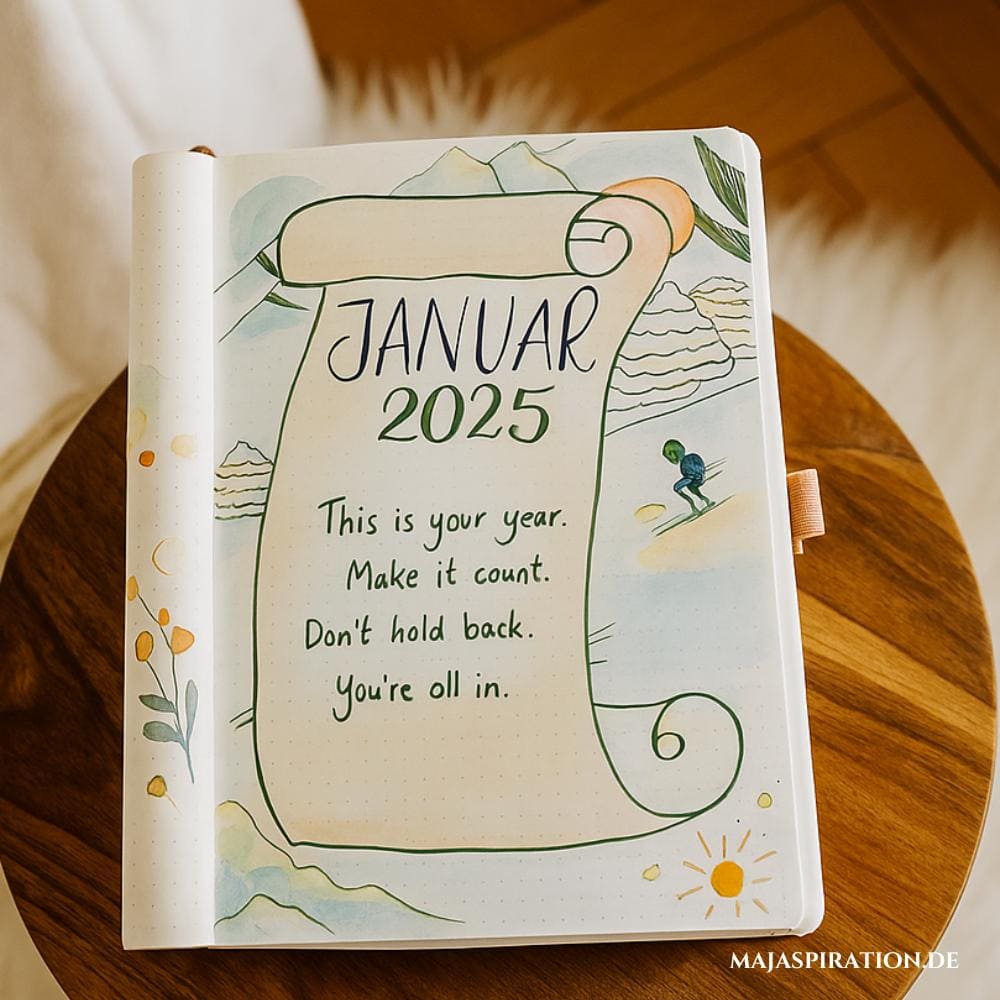 JANUAR
2025
This is your year.
Make it count.
Don't hold back.
You're oll in.
MAJASPIRATION.DE